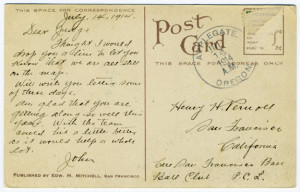 THIS SPACE FOR CORRESPONDENCE
July 14, 1914.
Dear Judge
Thought I would
drop you a line to let you
know that we are still
on the map.
Will write you letter some
of these days.
Am glad that you are
getting along so well this
year. With the team
a little better,
as it would help a whole
lot.
John
PUBLISHED BY EDW. H. MITCHELL, SAN FRANCISCO
Post
Card
THIS SPACE FOR ADDRESS ONLY
APPLEGATE
1914
OREGON
Henry
San Francisco
California
Care San Francisco Base
Ball Club P. C. L.